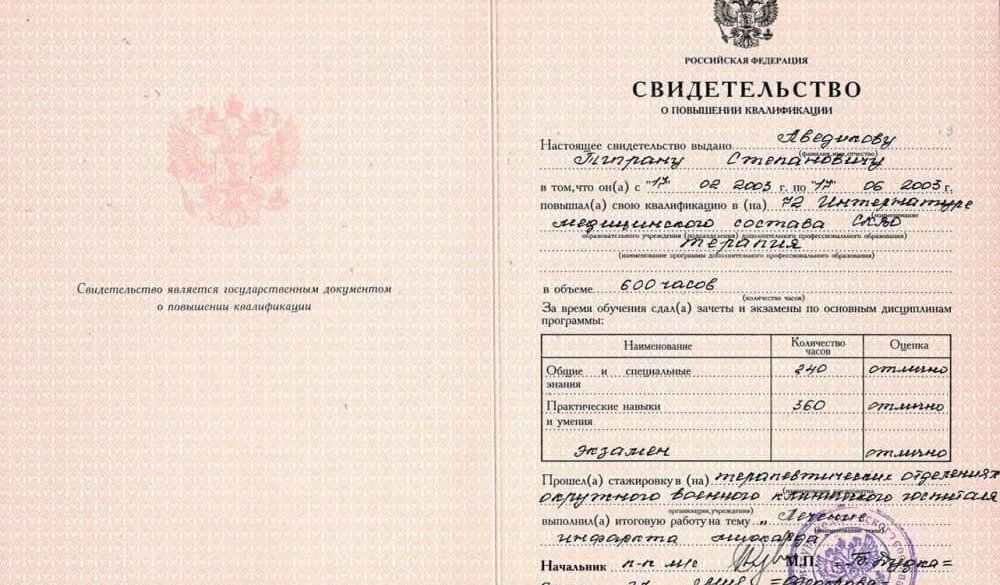 Свидетельство является государственным документом
о повышении квалификации
РОССИЙСКАЯ ФЕДЕРАЦИЯ
СВИДЕТЕЛЬСТВО
О ПОВЫШЕНИИ КВАЛИФИКАЦИИ
Настоящее свидетельство выдано
(фамилия, имя, отчество)
Тиграну Степановичу
в том, что он(а) с "17" 02 2003 г. по "17" 06 2003 г.
повышал(а) свою квалификацию в (на) 72 Интернатуре
(наименование
медицинского состава СКВО
образовательного учреждения (подразделения) дополнительного профессионального образования)
терапия
(наименование программы дополнительного профессионального образования)
в объеме 600 часов
(количество часов)
За время обучения сдал(а) зачеты и экзамены по основным дисциплинам
программы:
Наименование Количество часов Оценка
Общие и специальные знания 240 отлично
Практические навыки и умения 360 отлично
экзамен отлично
Прошел(а) стажировку в (на) терапевтических отделениях
окружного военного клинического госпиталя
организации, учреждения)
выполнил(а) итоговую работу на тему „Лечение
(наименование темы)
инфаркта миокарда"
Начальник п-п м/с М.П.